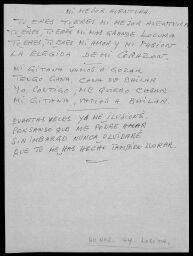 MI MEJOR AVENTURA.
TU ERES TU ERES MI MEJOR AVENTURA
TU ERES, TU ERES MI MAS GRANDE LOCURA
TU ERES, TU ERES MI AMOR Y MI PASION
LA ELEGIDA DE MI CORAZON.
MI GITANA VAMOS A GOZAR
TENGO GANA, GANA DE BAILAR
YO CONTIGO, ME QUIERO CASAR
MI GITANA, VAMOS A BAILAR.
CUANTAS VECES YA ME ILUSIONÉ
PENSANDO QUE ME PODRE
SIN EMBARGO NUNCA OLVIDARÉ
QUE TU ME HAS HECHO TAMBIEN LLORAR.
LOLITA.